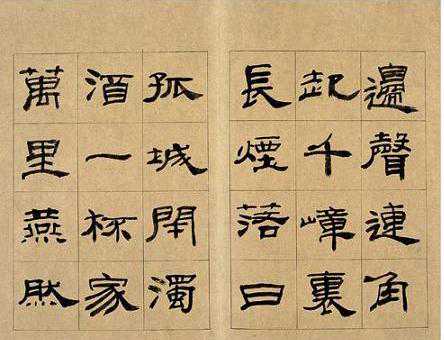 邊聲連角
起千嶂裏
長煙落日
孤城閉濁
酒一杯家
萬里燕然